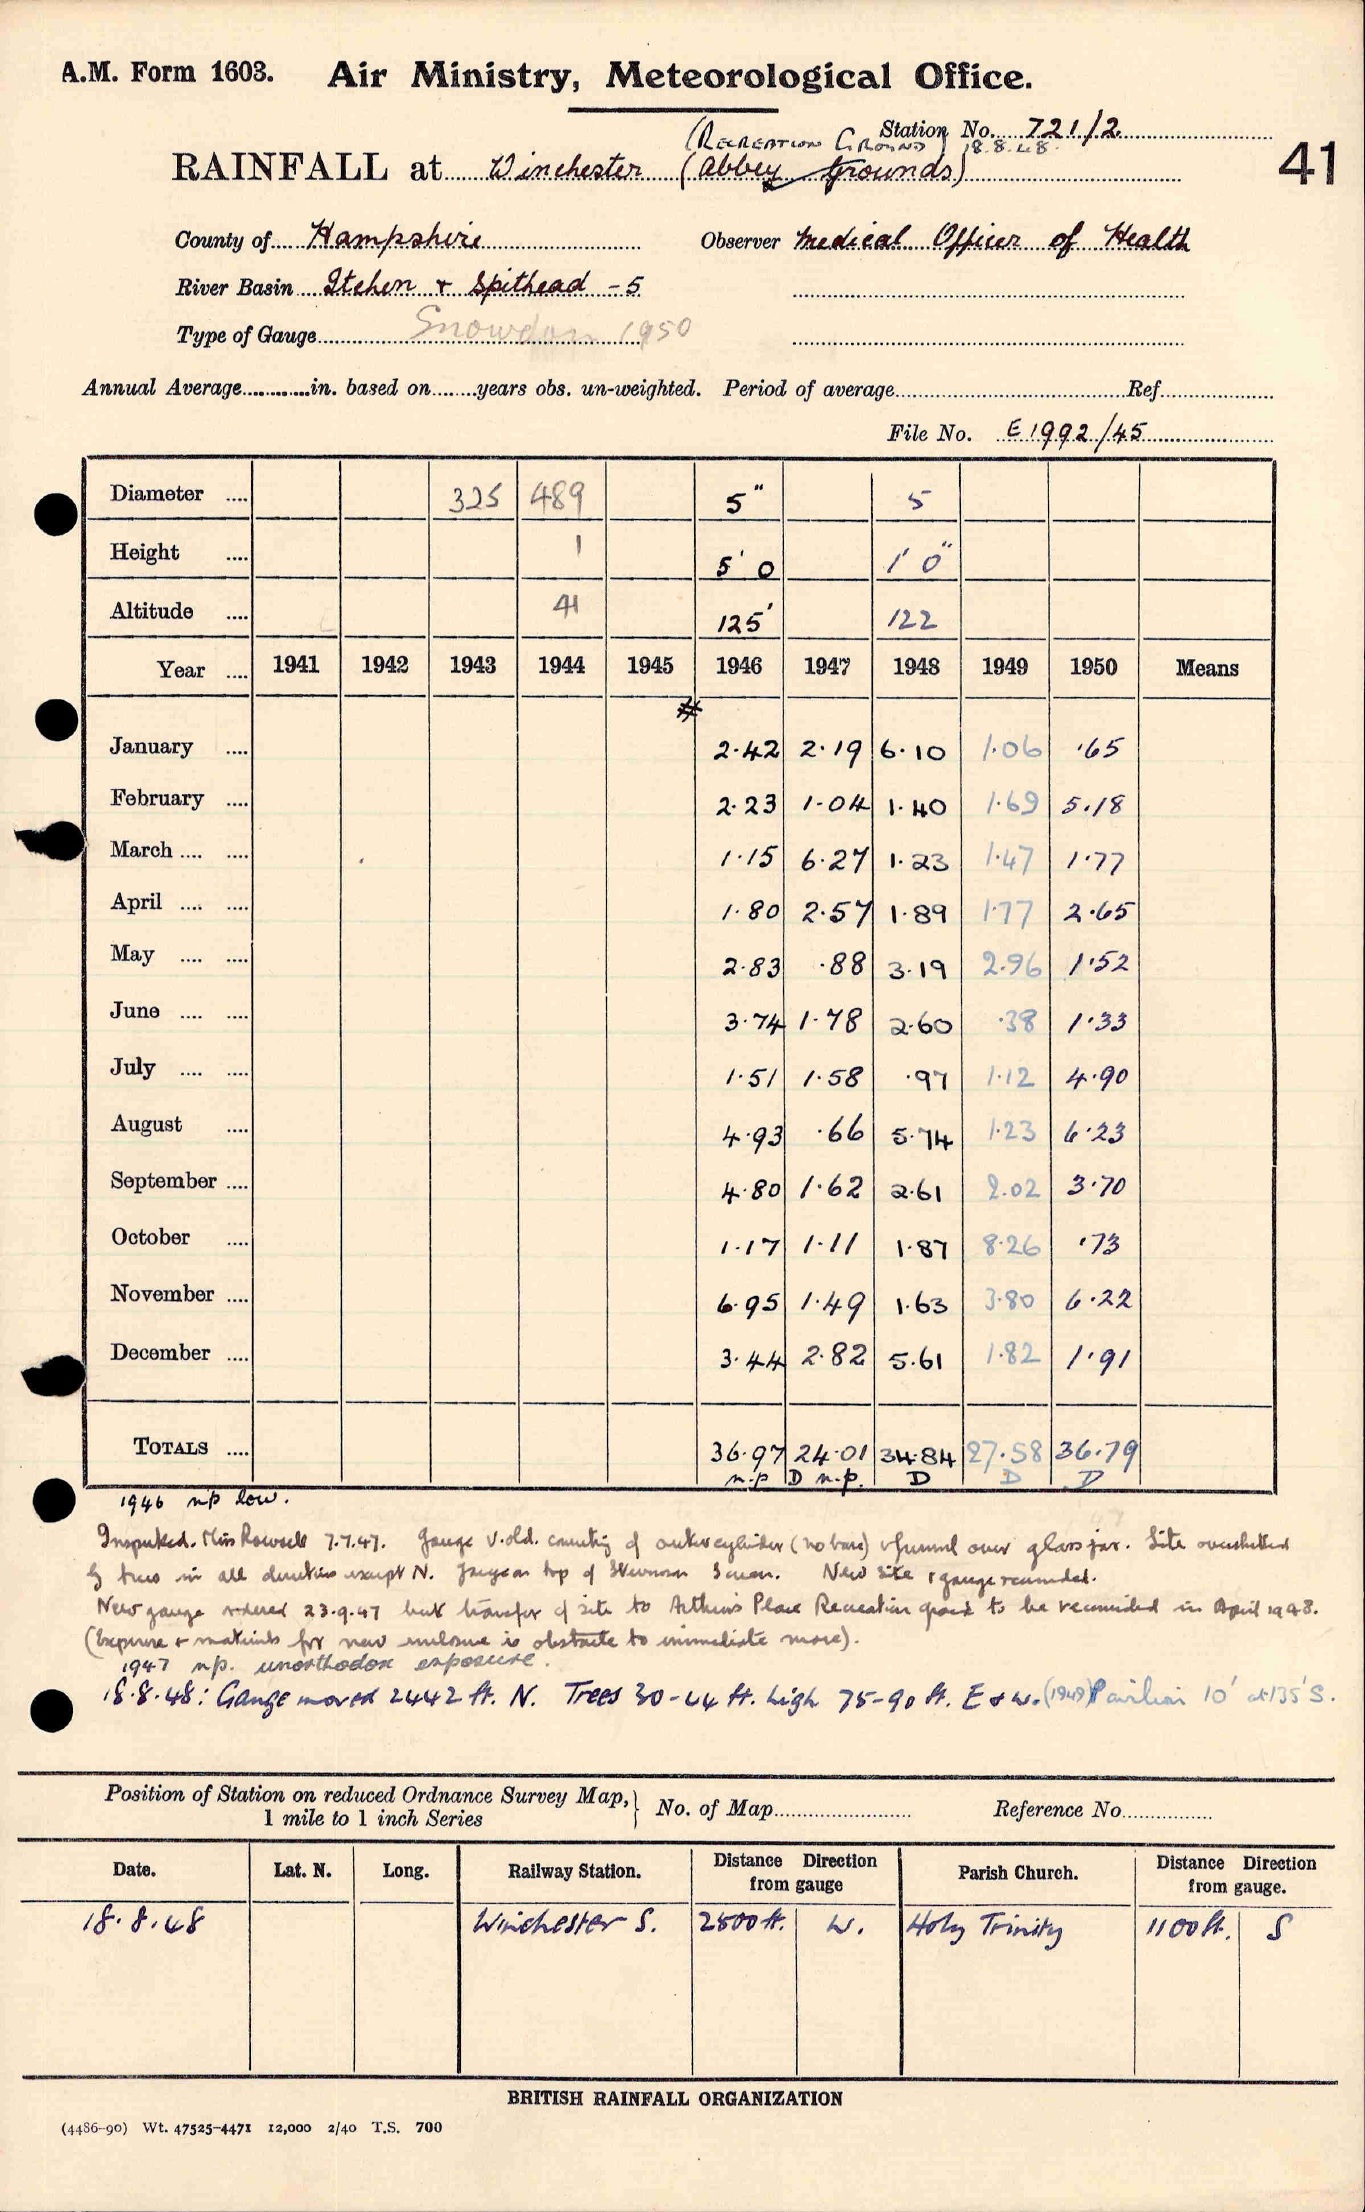 A.M. Form 1603. Air Ministry, Meteorological Office.
Station No. 721/2
(RECREATION GROUND) 18.8.48.
41
RAINFALL at Winchester (Abbey Grounds)
County of Hampshire Observer Medical Officer of Health
River Basin Itchen + Spithead -5
Type of Gauge Snowdon 1950
Annual Average in. based on years obs. un-weighted. Period of average Ref
File No. E1992/45
Diameter 325 489 5" 5
Height 1 5' 0 1' 0"
Altitude 41 125' 122
Year 1941 1942 1943 1944 1945 1946 1947 1948 1949 1950 Means
#
January 2.42 2.19 6.10 1.06 .65
February 2.23 1.04 1.40 1.69 5.18
March 1.15 6.27 1.23 1.47 1.77
April 1.80 2.57 1.89 1.77 2.65
May 2.83 .88 3.19 2.96 1.52
June 3.74 1.78 2.60 .38 1.33
July 1.51 1.58 .97 1.12 4.90
August 4.93 .66 5.74 1.23 6.23
September 4.80 1.62 2.61 2.02 3.70
October 1.17 1.11 1.87 8.26 .73
November 6.95 1.49 1.63 3.80 6.22
December 3.44 2.82 5.61 1.82 1.91
TOTALS 36.97 24.01 34.84 27.58 36.79
n.p D n.p. D D D
1946 np low.
Inspected. Miss 7.7.47. Gauge v.old. of outer cylinder (no base) + funnel over glass jar. Site oversheltered
by trees in all directions except N. top of Screen. New site + gauge
New gauge ordered 23.9.47 but transfer of site to Place Recreation ground to be in April 1948.
(Expense + materials for new enclosure is obstacle to immediate move).
1947 np. unorthodox exposure.
18.8.48: Gauge moved 2442 ft. N. Trees 30-44 ft. high 75-90 ft. E & W. (1949) Pavilion 10' at 135' S.
Position of Station on reduced Ordnance Survey Map, 1 mile to 1 inch Series } No. of Map Reference No.
Date. Lat. N. Long. Railway Station. Distance Direction from gauge Parish Church. Distance Direction from gauge.
18.8.48 Winchester S. 2800 ft. W. Holy Trinity 1100 ft. S
BRITISH RAINFALL ORGANIZATION
(4486-90) Wt. 47525-4471 12,000 2/40 T.S. 700